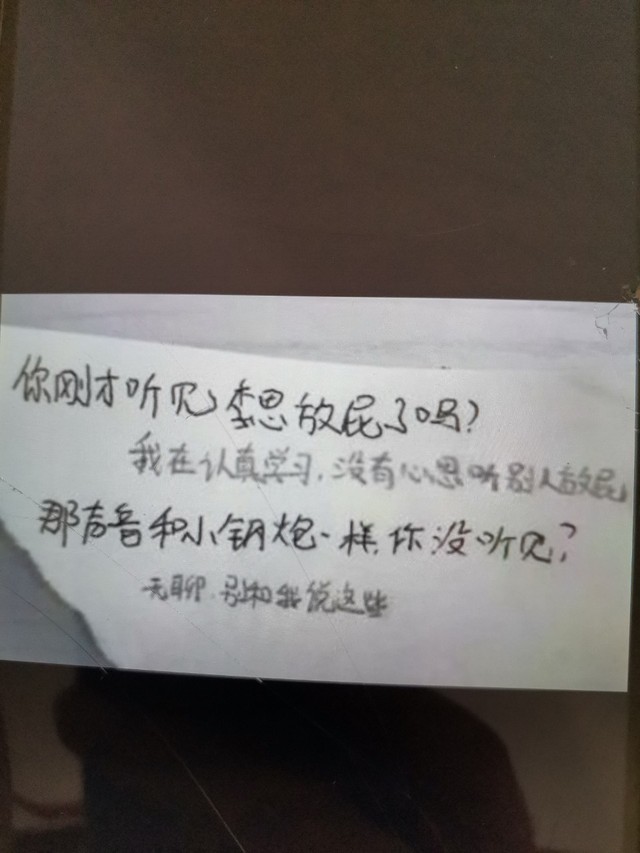 你刚才听见李思放屁了吗?
我在认真学习,没有心思听别人放屁
那声音和小钢炮一样,你没听见?
无聊,别和我说这些